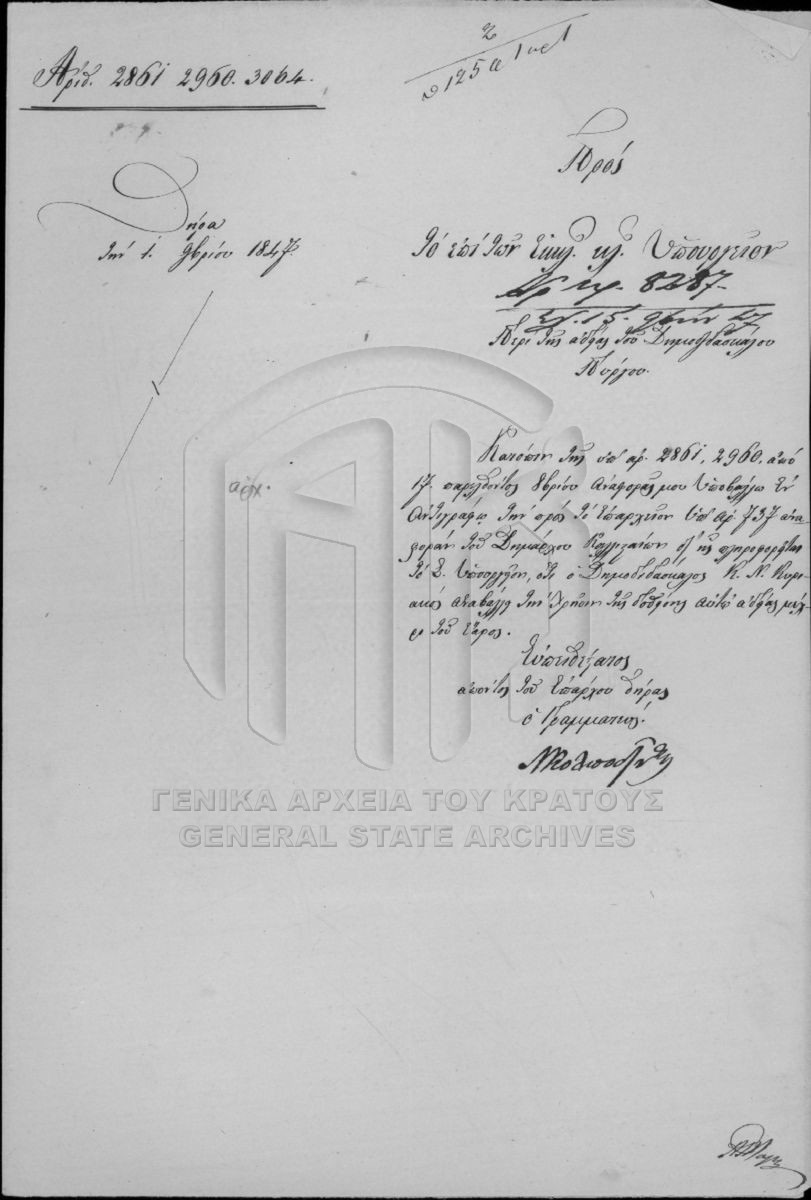 Αριθ. 2861 2960. 3064.
Θήρα
την 1. 9βρίου 1847
Πρός
Τό επί των Εκκλ. κλ. Υπουργείον
Αρ. πρ. 8287.
15. 9βρίου 47
Περί της αδείας του Δημοδιδασκάλου
Πύργου.
Κατόπιν της υπ' αρ. 2861, 2960. από
17. παρελθόντος 8βρίου αναφοράς μου υποβάλλω εν
αντιγράφω την πρός το Επαρχείον υπ' αρ. 737 ανα
φοράν του Δημάρχου Καλλισταίων δι' ης πληροφορείται
το Σ. Υπουργείον, ότι ο Δημοδιδάσκαλος Κ. Ν. Κυρι
ακός αναβάλλει την χρήσιν της δοθείσης αυτώ αδείας μέχ
ρι του έαρος.
Ευπειθέστατος
απόντος του Επάρχου Θήρας
ο Γραμματεύς.
αρχ.
ΓΕΝΙΚΑ ΑΡΧΕΙΑ ΤΟΥ ΚΡΑΤΟΥΣ
GENERAL STATE ARCHIVES